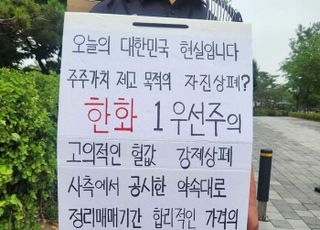 오늘의 대한민국 현실입니다
주주가치 제고 목적의 자진상폐?
한화 1 우선주의
고의적인 헐값 강제상폐
사측에서 공시한 약속대로
정리매매기간 합리적인 가격의